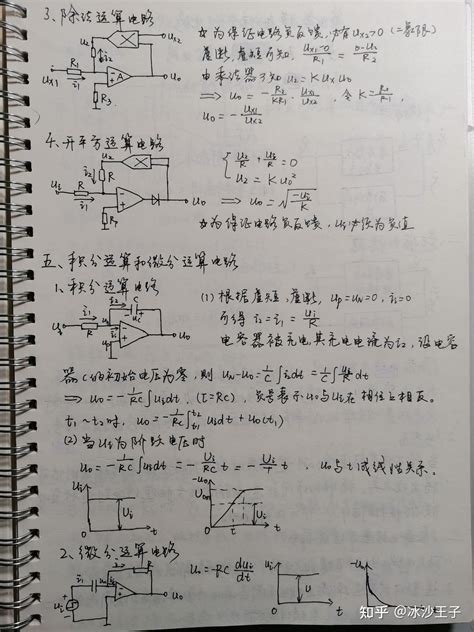 3、除法运算电路
ux2
R2 i2
R1
ux1 i1 A uo
R3
为保证电路负反馈，必有ux2>0 (二象限)
虚断，虚短可知，(ux1-0)/R1 = (0-u2)/R2
由乘法器可知 u2=Kux uo
⇒ uo = -R2/(KR1)·ux1/ux2，令K=R2/R1
uo = -ux1/ux2
4、开平方运算电路
i2 R
R
ui i1 uo
RP
ui/R + u2/R = 0
u2 = Kuo²
⇒ uo = √(-ui/K)
为保证电路负反馈，ui必须为负值
五、积分运算和微分运算电路
1、积分运算电路
i2 C
ui i1 R uc uo
(1) 根据虚短，虚断，up=uN=0，i=0
可得 i2=i1=ui/R
电容器被充电，其充电电流为i2，设电容
器C的初始电压为零，则 uN-uo=1/C∫i2dt=1/C∫ui/R dt
⇒ uo=-1/RC∫uidt，(τ=RC)，负号表示uo与ui在相位上相反。
t1~t2时，uo=-1/RC∫t1t2 uidt+uo(t1)
(2) 当ui为阶跃电压时
uo=-1/RC∫uidt=-Ui/RC t=-Ui/τ t，uo与t成线性关系。
ui
Ui
t
-uo
Uom
Ui
t
2、微分运算电路
ui i1 C R uo
uo=-RC dui/dt
ui
U
t
t
知乎 @冰沙王子